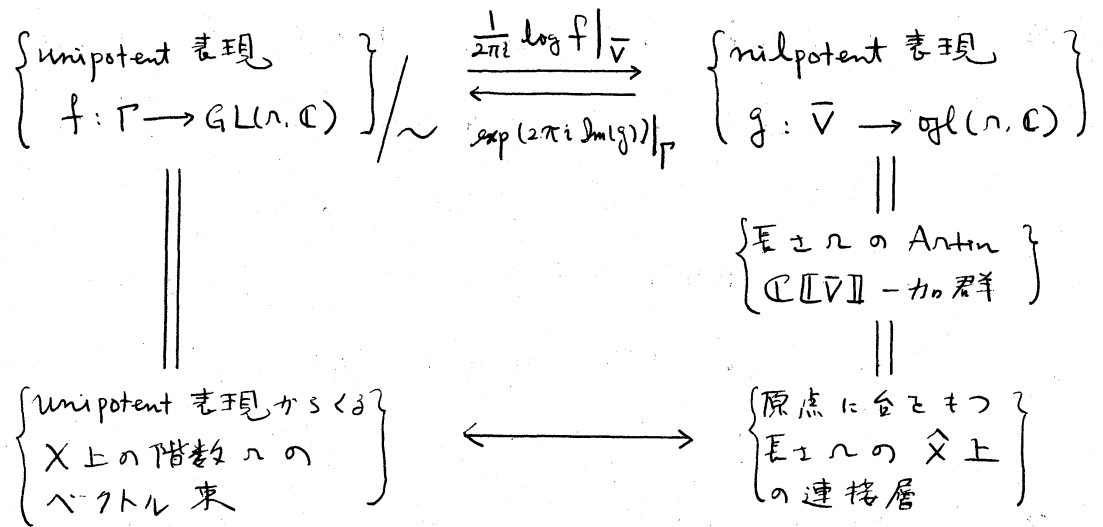 {unipotent 表現
f : Γ → GL(n, ℂ)}/∼
1/2πi log f|_V̄
exp(2πi Im(g))|_Γ
{nilpotent 表現
g : V̄ → gl(n, ℂ)}
{長さ n の Artin
ℂ[[V̄]] -加群}
{unipotent 表現からくる
X上の階数 n の
ベクトル束}
{原点に台をもつ
長さ n の X̂ 上
の連接層}